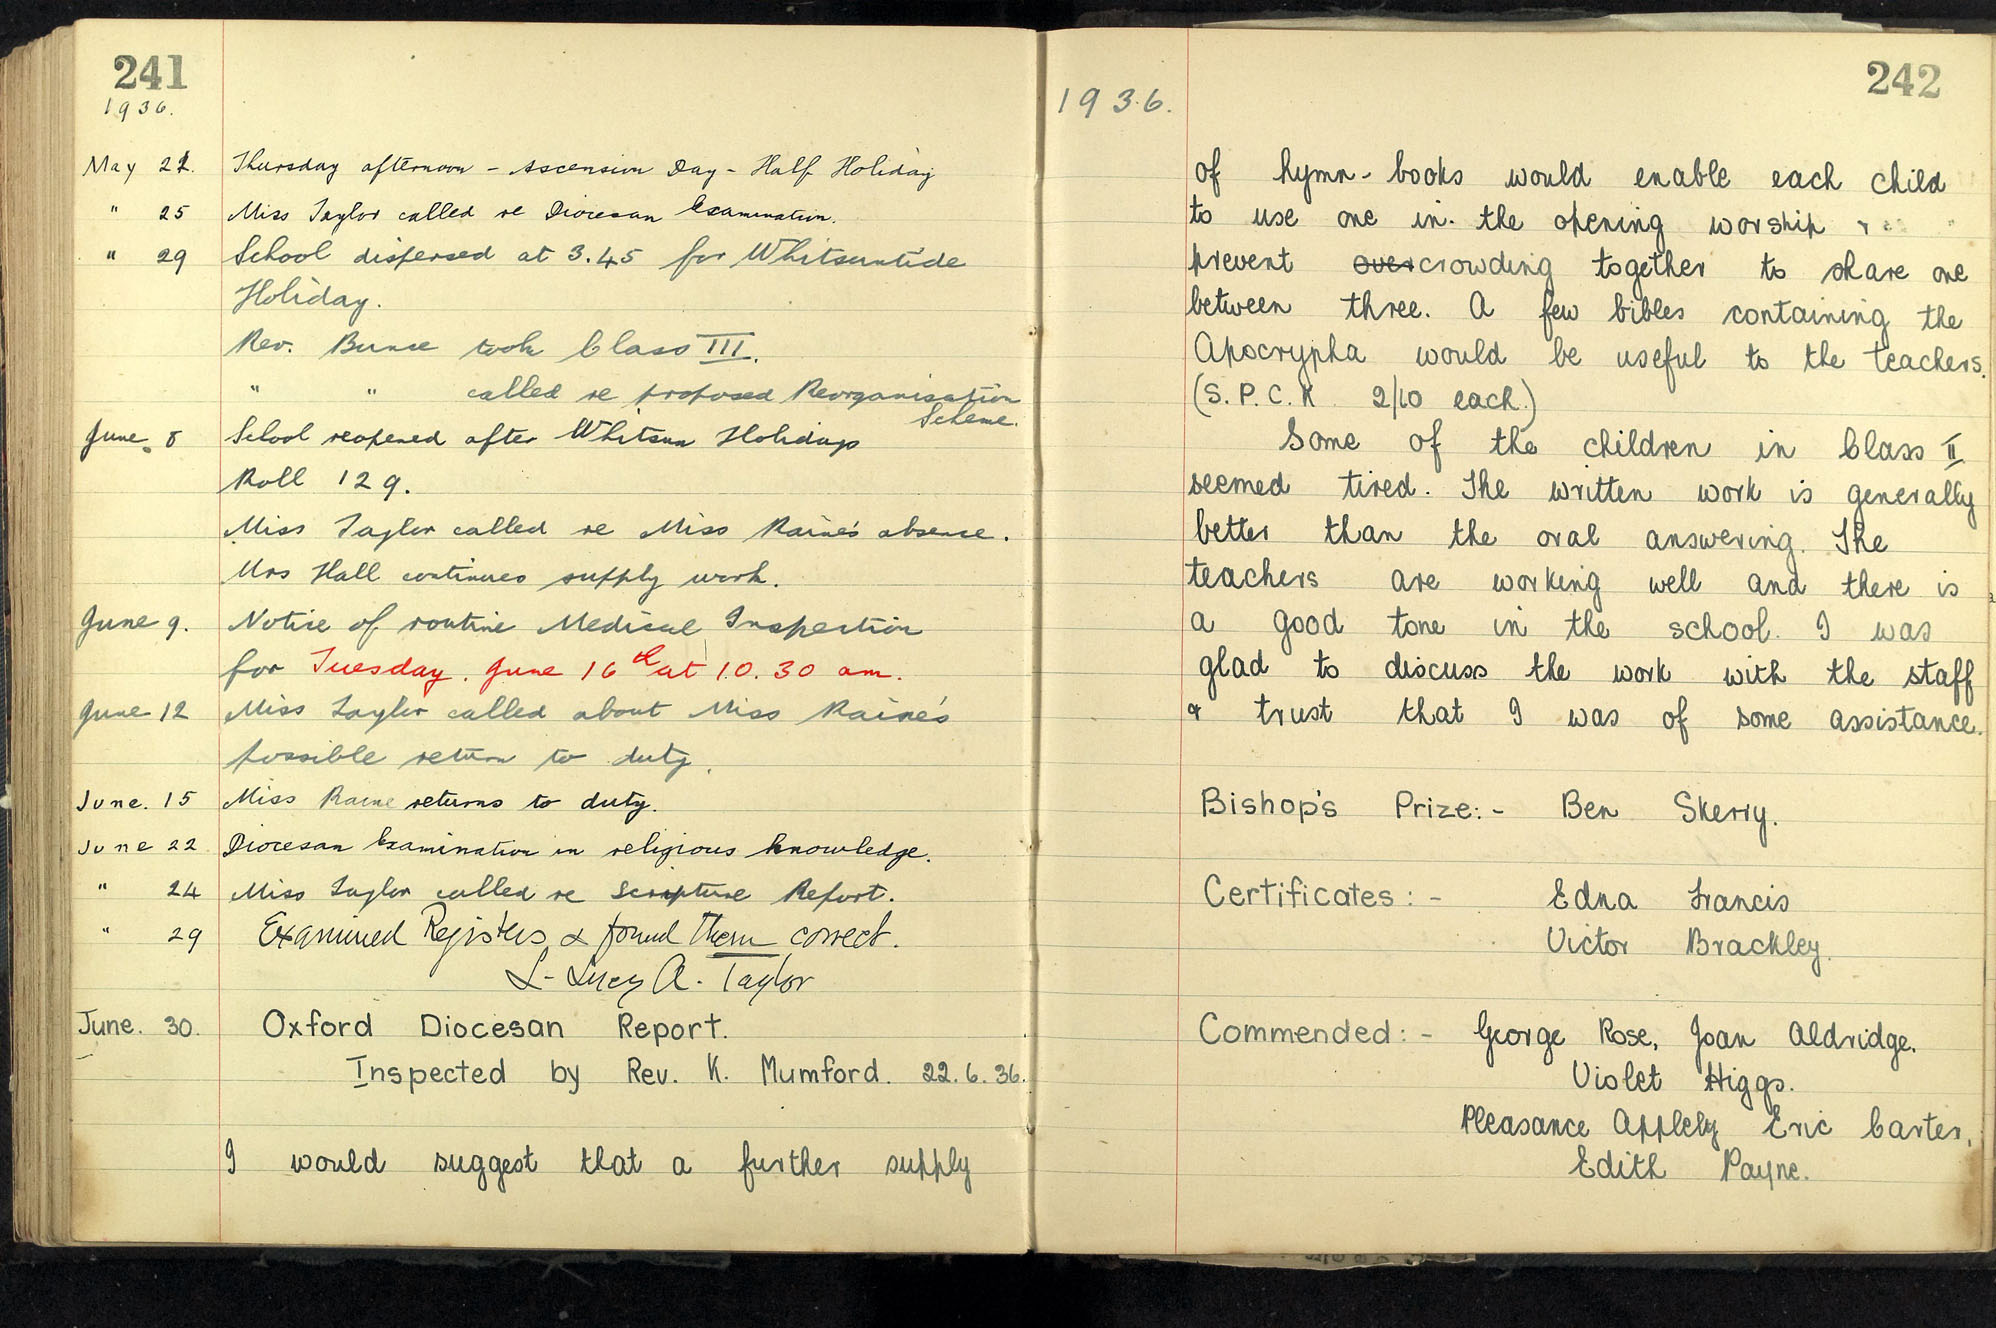 241
1936.
May 21. Thursday afternoon - Ascension Day - Half Holiday
" 25 Miss Taylor called re Diocesan Examination.
" 29 School dispersed at 3.45 for Whitsuntide
Holiday.
Rev. Bunce took Class III.
" " called re proposed Reorganisation
Scheme.
June 8 School reopened after Whitsun Holidays
Roll 129.
Miss Taylor called re Miss Raine's absence.
Mrs Hall continues supply work.
June 9. Notice of routine Medical Inspection
for Tuesday. June 16th at 10.30 am.
June 12 Miss Taylor called about Miss Raine's
possible return to duty.
June. 15 Miss Raine returns to duty.
June 22 Diocesan Examination in religious knowledge.
" 24 Miss Taylor called re Scripture Report.
" 29 Examined Registers & found them correct.
L- Lucy A. Taylor
June. 30. Oxford Diocesan Report.
Inspected by Rev. K. Mumford. 22.6.36.
I would suggest that a further supply
242
1936.
of hymn-books would enable each child
to use one in the opening worship &
prevent overcrowding together to share one
between three. A few bibles containing the
Apocrypha would be useful to the teachers.
(S.P.C.K 2/10 each.)
Some of the children in Class II
seemed tired. The written work is generally
better than the oral answering. The
teachers are working well and there is
a good tone in the school. I was
glad to discuss the work with the staff
& trust that I was of some assistance.
Bishop's Prize:- Ben Skerry.
Certificates:- Edna Francis
Victor Brackley.
Commended:- George Rose, Joan Aldridge.
Violet Higgs.
Pleasance Appleby Eric Carter,
Edith Payne.